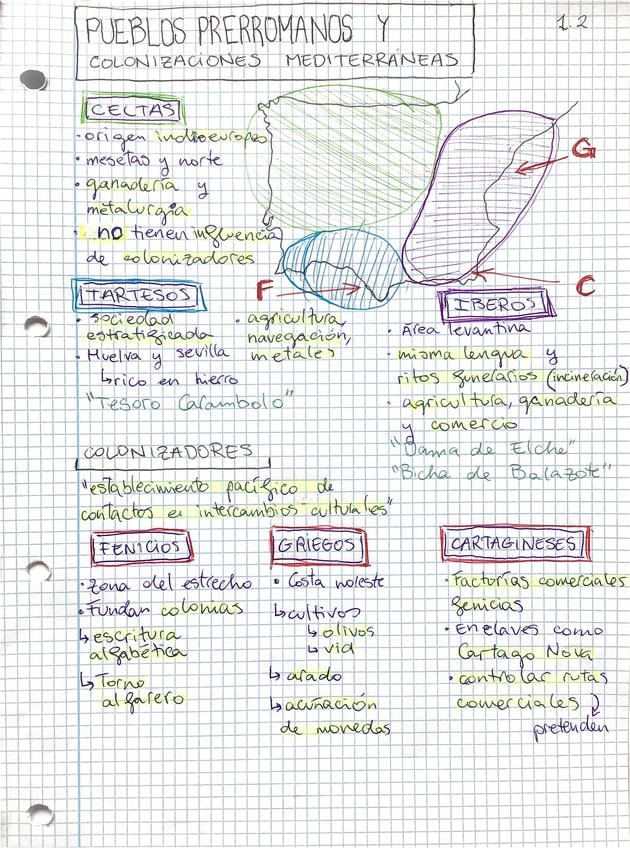 PUEBLOS PRERROMANOS Y
COLONIZACIONES MEDITERRÁNEAS
1.2
CELTAS
· origen indioeuropeo
· mesetas y norte
· ganadería y
metalurgia
· no tienen influencia
de colonizadores
G
F
C
TARTESOS
· sociedad
estratificada
· Huelva y sevilla
↳ rico en hierro
"Tesoro Carambolo"
· agricultura,
navegación,
metales
IBEROS
· Área levantina
· misma lengua y
ritos funerarios (incineración)
· agricultura, ganadería
y comercio
"Dama de Elche"
"Bicha de Balazote"
COLONIZADORES
"establecimiento pacífico de
contactos e intercambios culturales"
FENICIOS
· Zona del estrecho
· Fundan colonias
↳ escritura
alfabética
↳ Torno
alfarero
GRIEGOS
· Costa noleste
↳ cultivos
↳ olivos
↳ vid
↳ arado
↳ acuñación
de monedas
CARTAGINESES
· Facturías comerciales
fenicias
· Enclaves como
Cartago Nova
· controlar rutas
comerciales
pretenden